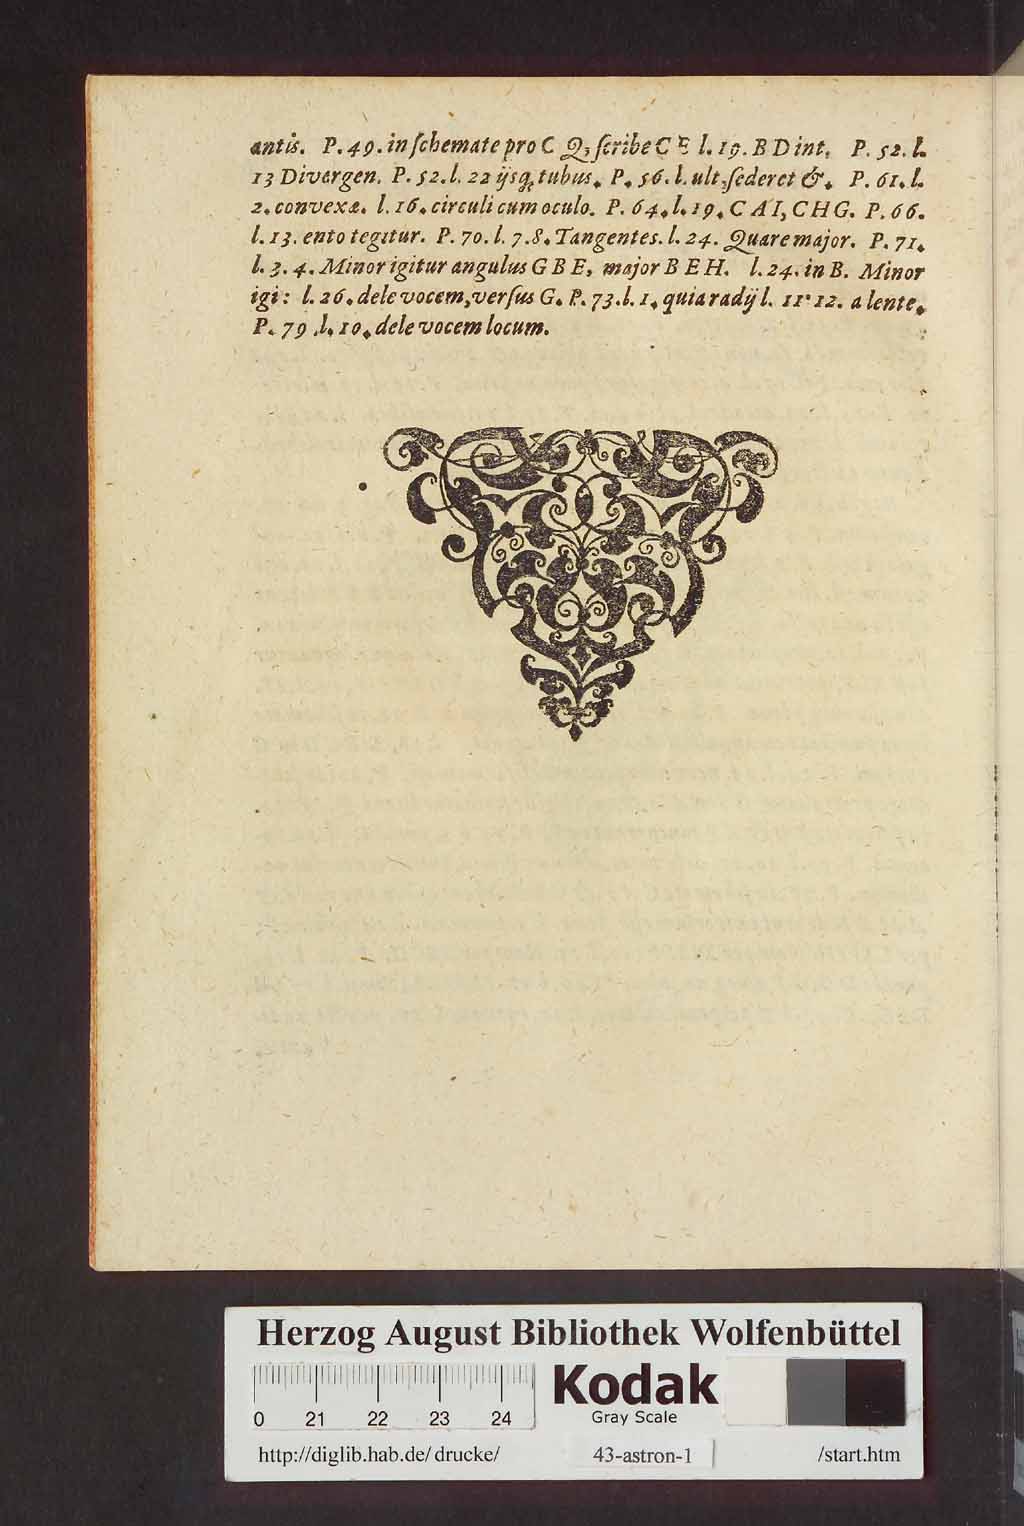 antis. P. 49. in ſchemate pro C Q; ſcribe C E l. 19. B D int. P. 52. l.
13 Divergen. P. 52. l. 22 ijsq; tubus. P. 56. l. ult; ſederet &. P. 61. l.
2. convexæ. l. 16. circuli cum oculo. P. 64. l. 19. C A I, C H G. P. 66.
l. 13. ento tegitur. P. 70. l. 7. 8. Tangentes. l. 24. Quare major. P. 71.
l. 3. 4. Minor igitur angulus G B E, major B E H. l. 24. in B. Minor
igi: l. 26. dele vocem, verſus G. P. 73. l. 1. quia radij l. 11. 12. a lente.
P. 79. l. 10. dele vocem locum.
Herzog August Bibliothek Wolfenbüttel
0 21 22 23 24
Kodak
Gray Scale
http://diglib.hab.de/drucke/ 43-astron-1 /start.htm